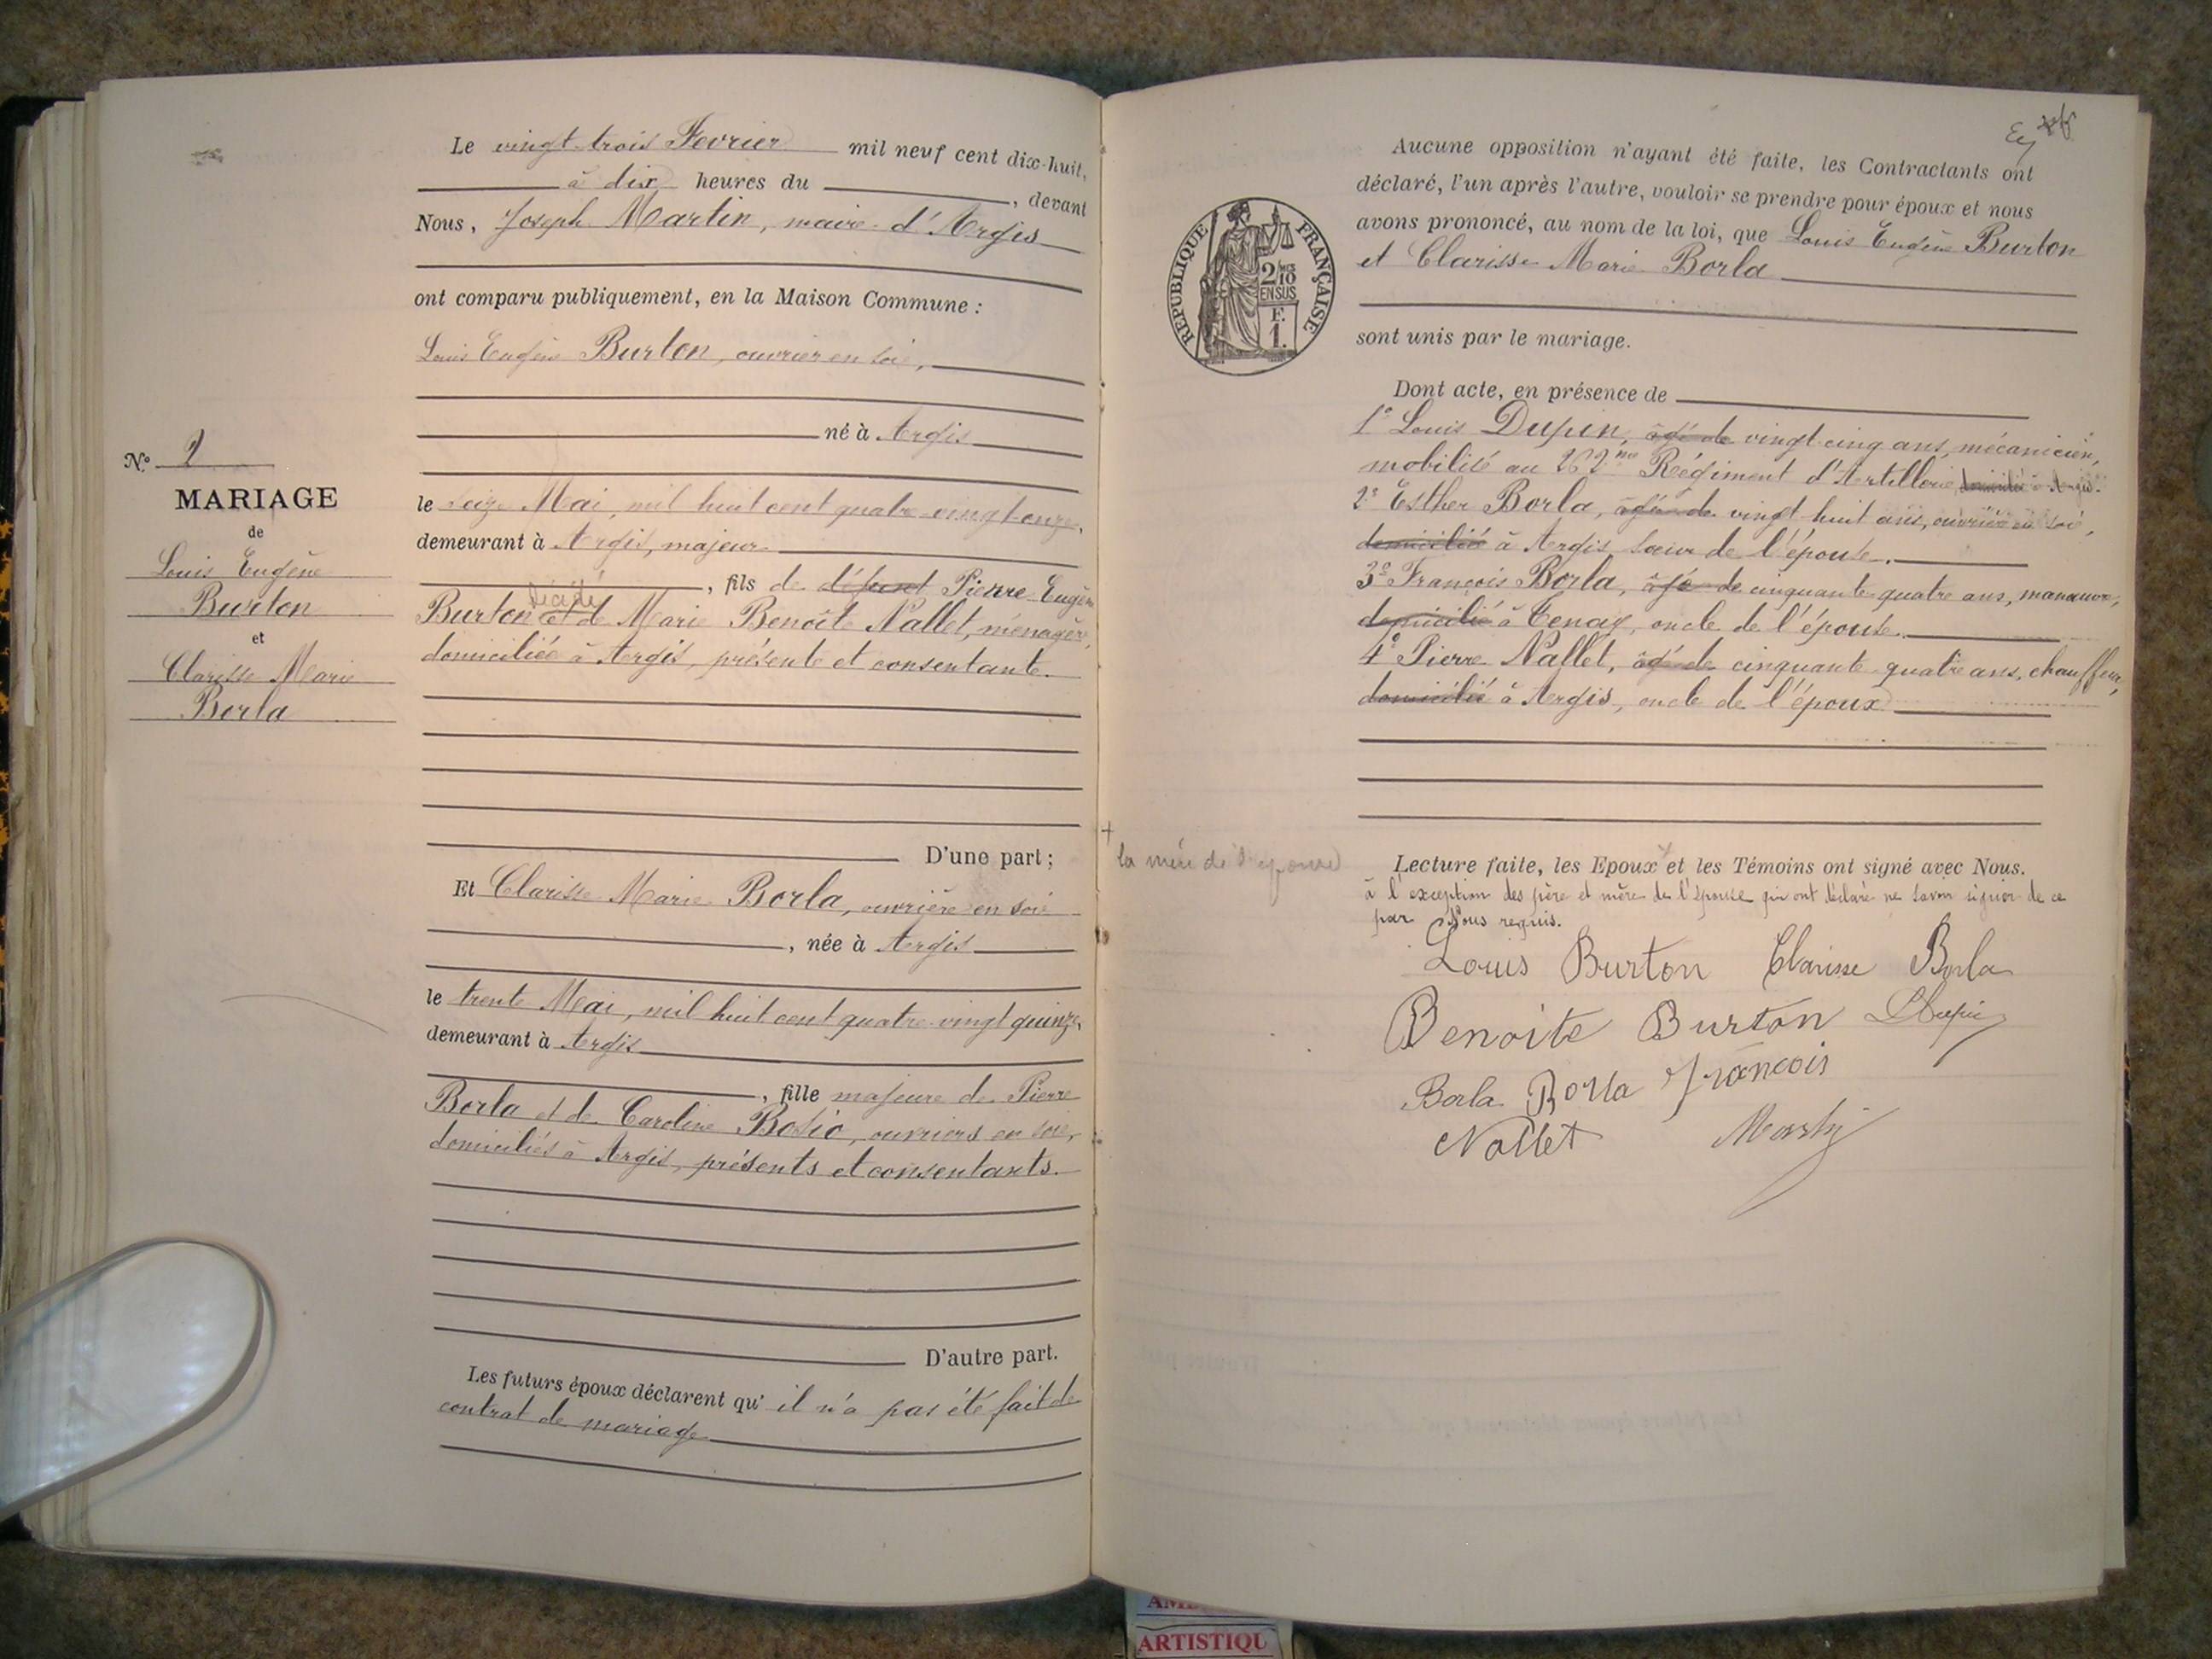 N° 2
MARIAGE
de
Louis Eugène
Burton
et
Clarisse Marie
Borla
Le vingt-trois Fevrier mil neuf cent dix-huit,
à dix heures du , devant
Nous, Joseph Martin, maire d'Argis
ont comparu publiquement, en la Maison Commune :
Louis Eugène Burton, ouvrier en soie,
né à Argis
le seize Mai, mil huit cent quatre-vingt-onze,
demeurant à Argis, majeur
, fils de défunt Pierre Eugène
décédé
Burton et de Marie Benoîte Nallet, ménagère,
domiciliée à Argis, présente et consentante.
D'une part ;
Et Clarisse Marie Borla, ouvrière en soie
, née à Argis
le trente Mai, mil huit cent quatre-vingt quinze,
demeurant à Argis
, fille majeure de Pierre
Borla et de Caroline Bosio, ouvriers en soie,
domiciliés à Argis, présents et consentants.
D'autre part.
Les futurs époux déclarent qu'il n'a pas été fait de
contrat de mariage
REPUBLIQUE FRANÇAISE
2/10
MES
EN SUS
F.
1.
Aucune opposition n'ayant été faite, les Contractants ont
déclaré, l'un après l'autre, vouloir se prendre pour époux et nous
avons prononcé, au nom de la loi, que Louis Eugène Burton
et Clarisse Marie Borla
sont unis par le mariage.
Dont acte, en présence de
1° Louis Dupin, âgé de vingt-cinq ans, mécanicien,
mobilisé au 262me Régiment d'Artillerie, domicilié à Argis.
2° Esther Borla, âgée de vingt-huit ans, ouvrière en soie,
domiciliée à Argis sœur de l'épouse.
3° François Borla, âgé de cinquante-quatre ans, manœuvre,
domicilié à Tenay, oncle de l'épouse.
4° Pierre Nallet, âgé de cinquante-quatre ans, chauffeur,
domicilié à Argis, oncle de l'époux
+
la mère de l'époux
Lecture faite, les Epoux + et les Témoins ont signé avec Nous.
à l'exception des père et mère de l'épouse qui ont déclaré ne savoir signer de ce
par Nous requis.
Louis Burton Clarisse Borla
Benoite Burton LDupin
Borla Borla François
Nallet Martin
ARTISTIQU